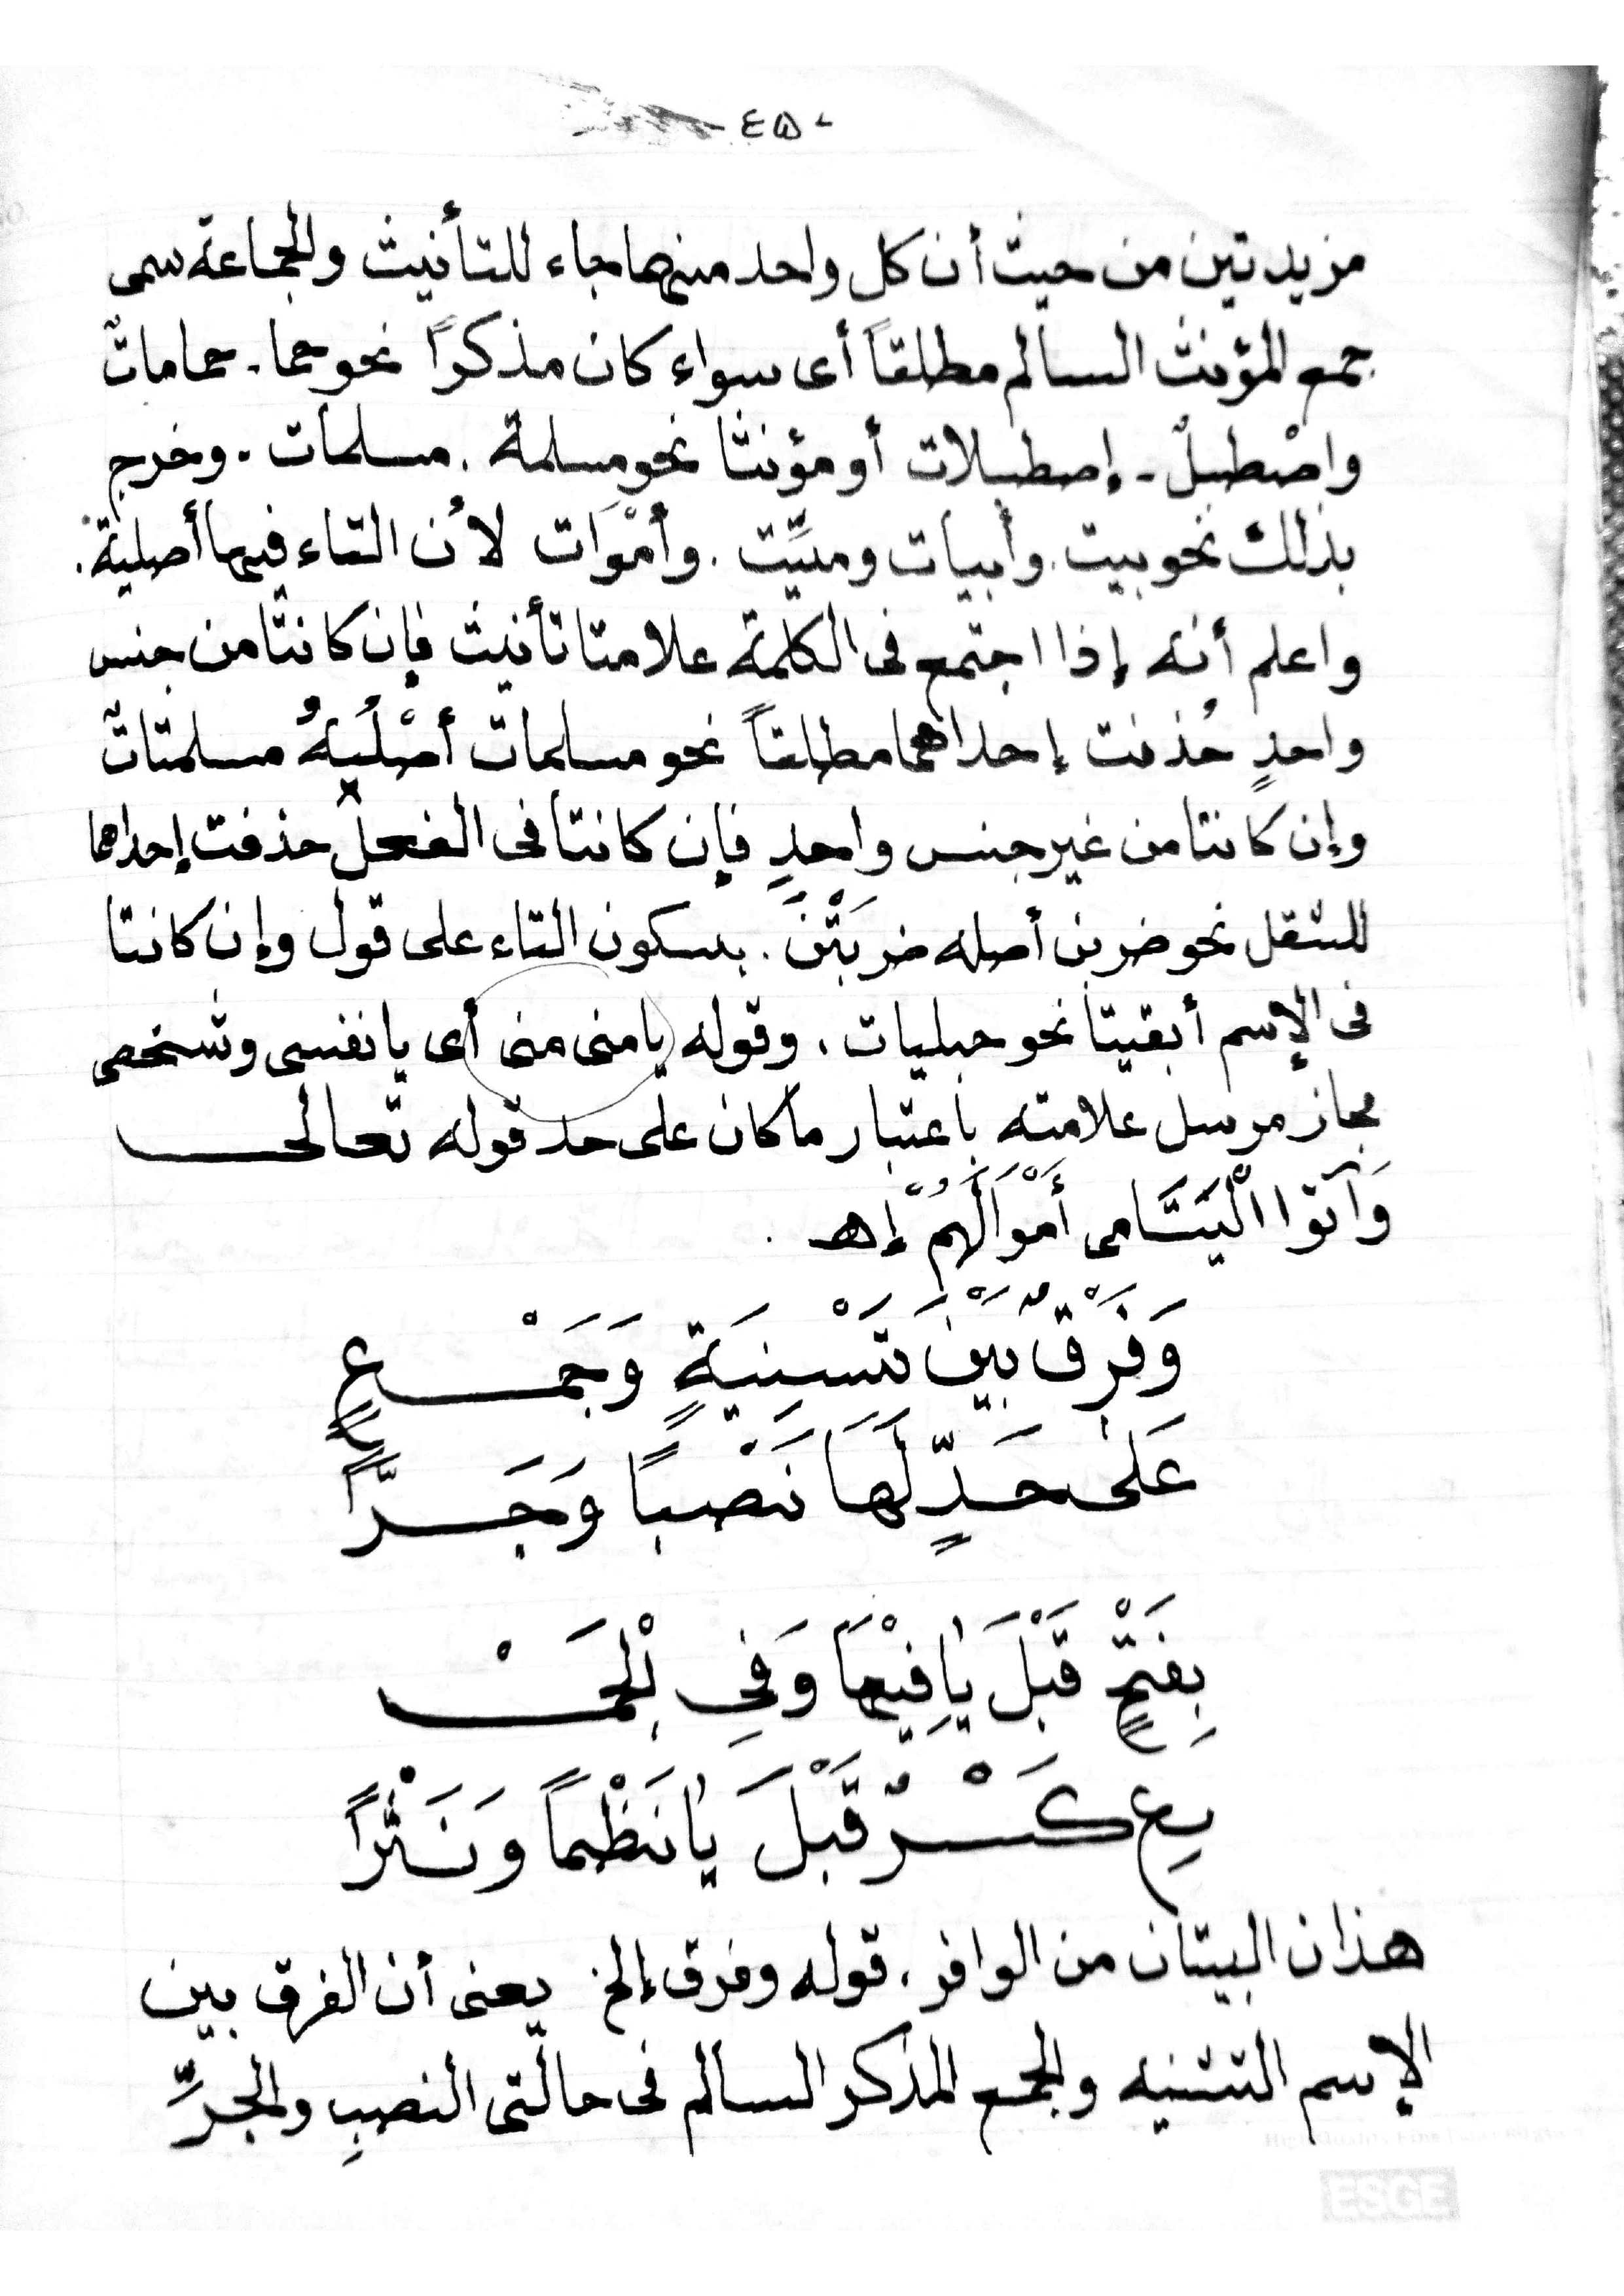 - ٤٥ -
مزيدتين من حيث أن كل واحد منهما جاء للتأنيث والجماعة سمى
جمع المؤنث السالم مطلقاً أى سواء كان مذكراً نحو حما - حمامات
واصْطبلٌ - إصطبلات أو مؤنثا نحو مسلمة . مسلمات . وخرج
بذلك نحو بيت . وأبيات وميّت . وأمْوَات لأن التاء فيها أصلية .
واعلم أنه إذا اجتمع فى الكلمة علامتا تأنيث فإن كانتا من جنس
واحدٍ حُذفت إحداهما مطلقاً نحو مسلمات أصْلُيهُ مسلمتاتٌ
وإن كانتا من غير جنس واحدٍ فإن كانتا فى الفعل حذفت إحداهما
للثقل نحو ضربن أصله ضربَتْنَ . بسكون التاء على قول وإن كانتا
فى الإسم أبقيتا نحو حبليات . وقوله يا منى منى أى يا نفسى وشخصى
مجاز مرسل علامته باعتبار ما كان على حد قوله تعالى
وَآتوا الْيَتَامى أَمْوَالَهُمْ إهـ .
وَفَرْقٌ بَيْنَ تَسْنِيَةٍ وَجَمْـعٍ
عَلَى حَدٍّ لَهَا نَصْبًا وَجَـرًّا
بِفَتْحٍ قَبْلَ يَا فِيْهَا وَفِى الْجَمْـ
ـعِ كَسْرٌ قَبْلَ يَا نَظْماً وَنَثْراً
هذان البيتان من الوافر . قوله وفرق إلخ يعنى أن الفرق بين
الإسم التثنيه والجمع المذكر السالم فى حالتى النصبِ والجرِّ
ESGE